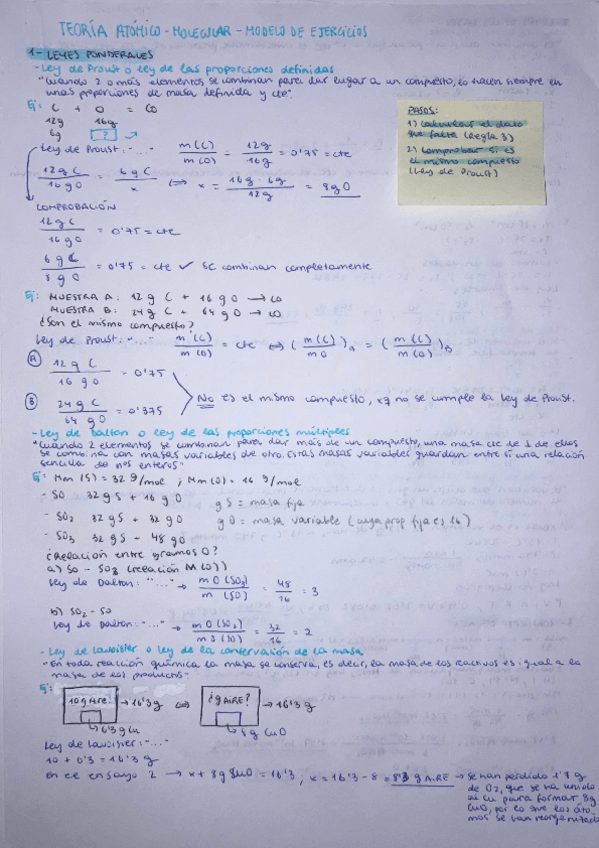 TEORÍA ATÓMICO - MOLECULAR - MODELO DE EJERCICIOS
1- LEYES PONDERALES
- Ley de Proust o ley de las proporciones definidas
"Cuando 2 o más elementos se combinan para dar lugar a un compuesto, lo hacen siempre en
unas proporciones de masa definida y cte."
Ej: C + O = CO
12g 16g
6g ?
Ley de Proust: "..." m(C)/m(O) = 12g/16g = 0'75 = cte
12g C/16g O = 6g C/x ⟺ x = 16g · 6g/12g = 8g O
PASOS:
1) Calcular el dato
que falte (Regla 3)
2) Comprobar si es
el mismo compuesto
(Ley de Proust)
COMPROBACIÓN
12g C/16g O = 0'75 = cte
6g C/8g O = 0'75 = cte ✓ Se combinan completamente
Ej: MUESTRA A: 12g C + 16g O → CO
MUESTRA B: 24g C + 64g O → CO
¿Son el mismo compuesto?
Ley de Proust: "..." m(C)/m(O) = cte ⟺ (m(C)/mO)A = (m(C)/m(O))B
A 12g C/16g O = 0'75
No es el mismo compuesto, xq no se cumple la ley de Proust.
B 24g C/64g O = 0'375
- Ley de Dalton o ley de las proporciones múltiples
"Cuando 2 elementos se combinan para dar más de un compuesto, una masa cte de 1 de ellos
se combina con masas variables de otro. Estas masas variables guardan entre sí una relación
sencilla de nos enteros"
Ej: Mm (S) = 32 g/mol ; Mm (O) = 16 g/mol
- SO 32g S + 16g O g S = masa fija
- SO2 32g S + 32g O g O = masa variable ( prop fija es 16)
- SO3 32g S - 48g O
¿Relación entre gramos O?
a) SO - SO3 (relación M(O))
Ley de Dalton: "..." → m O (SO3)/m (SO) = 48/16 = 3
b) SO2 - SO
Ley de Dalton: "..." → m O (SO2)/m O (SO) = 32/16 = 2
- Ley de Lavoisier o ley de la conservación de la masa
"En toda reacción química la masa se conserva, es decir, la masa de los reactivos es igual a la
masa de los productos"
Ej: 10g AIRE → 16'3g ⟺ ¿g AIRE? → 16'3 g
6'3g Cu 8g CuO
Ley de Lavoisier: "..."
10 + 6'3 = 16'3g
En el ensayo 2 → x + 8g CuO = 16'3 ; x = 16'3 - 8 = 8'3 g AIRE → Se han perdido 1'7 g
de O2, que se ha unido
al Cu para formar 8g
CuO, por lo que los áto-
mos se han reorganizado